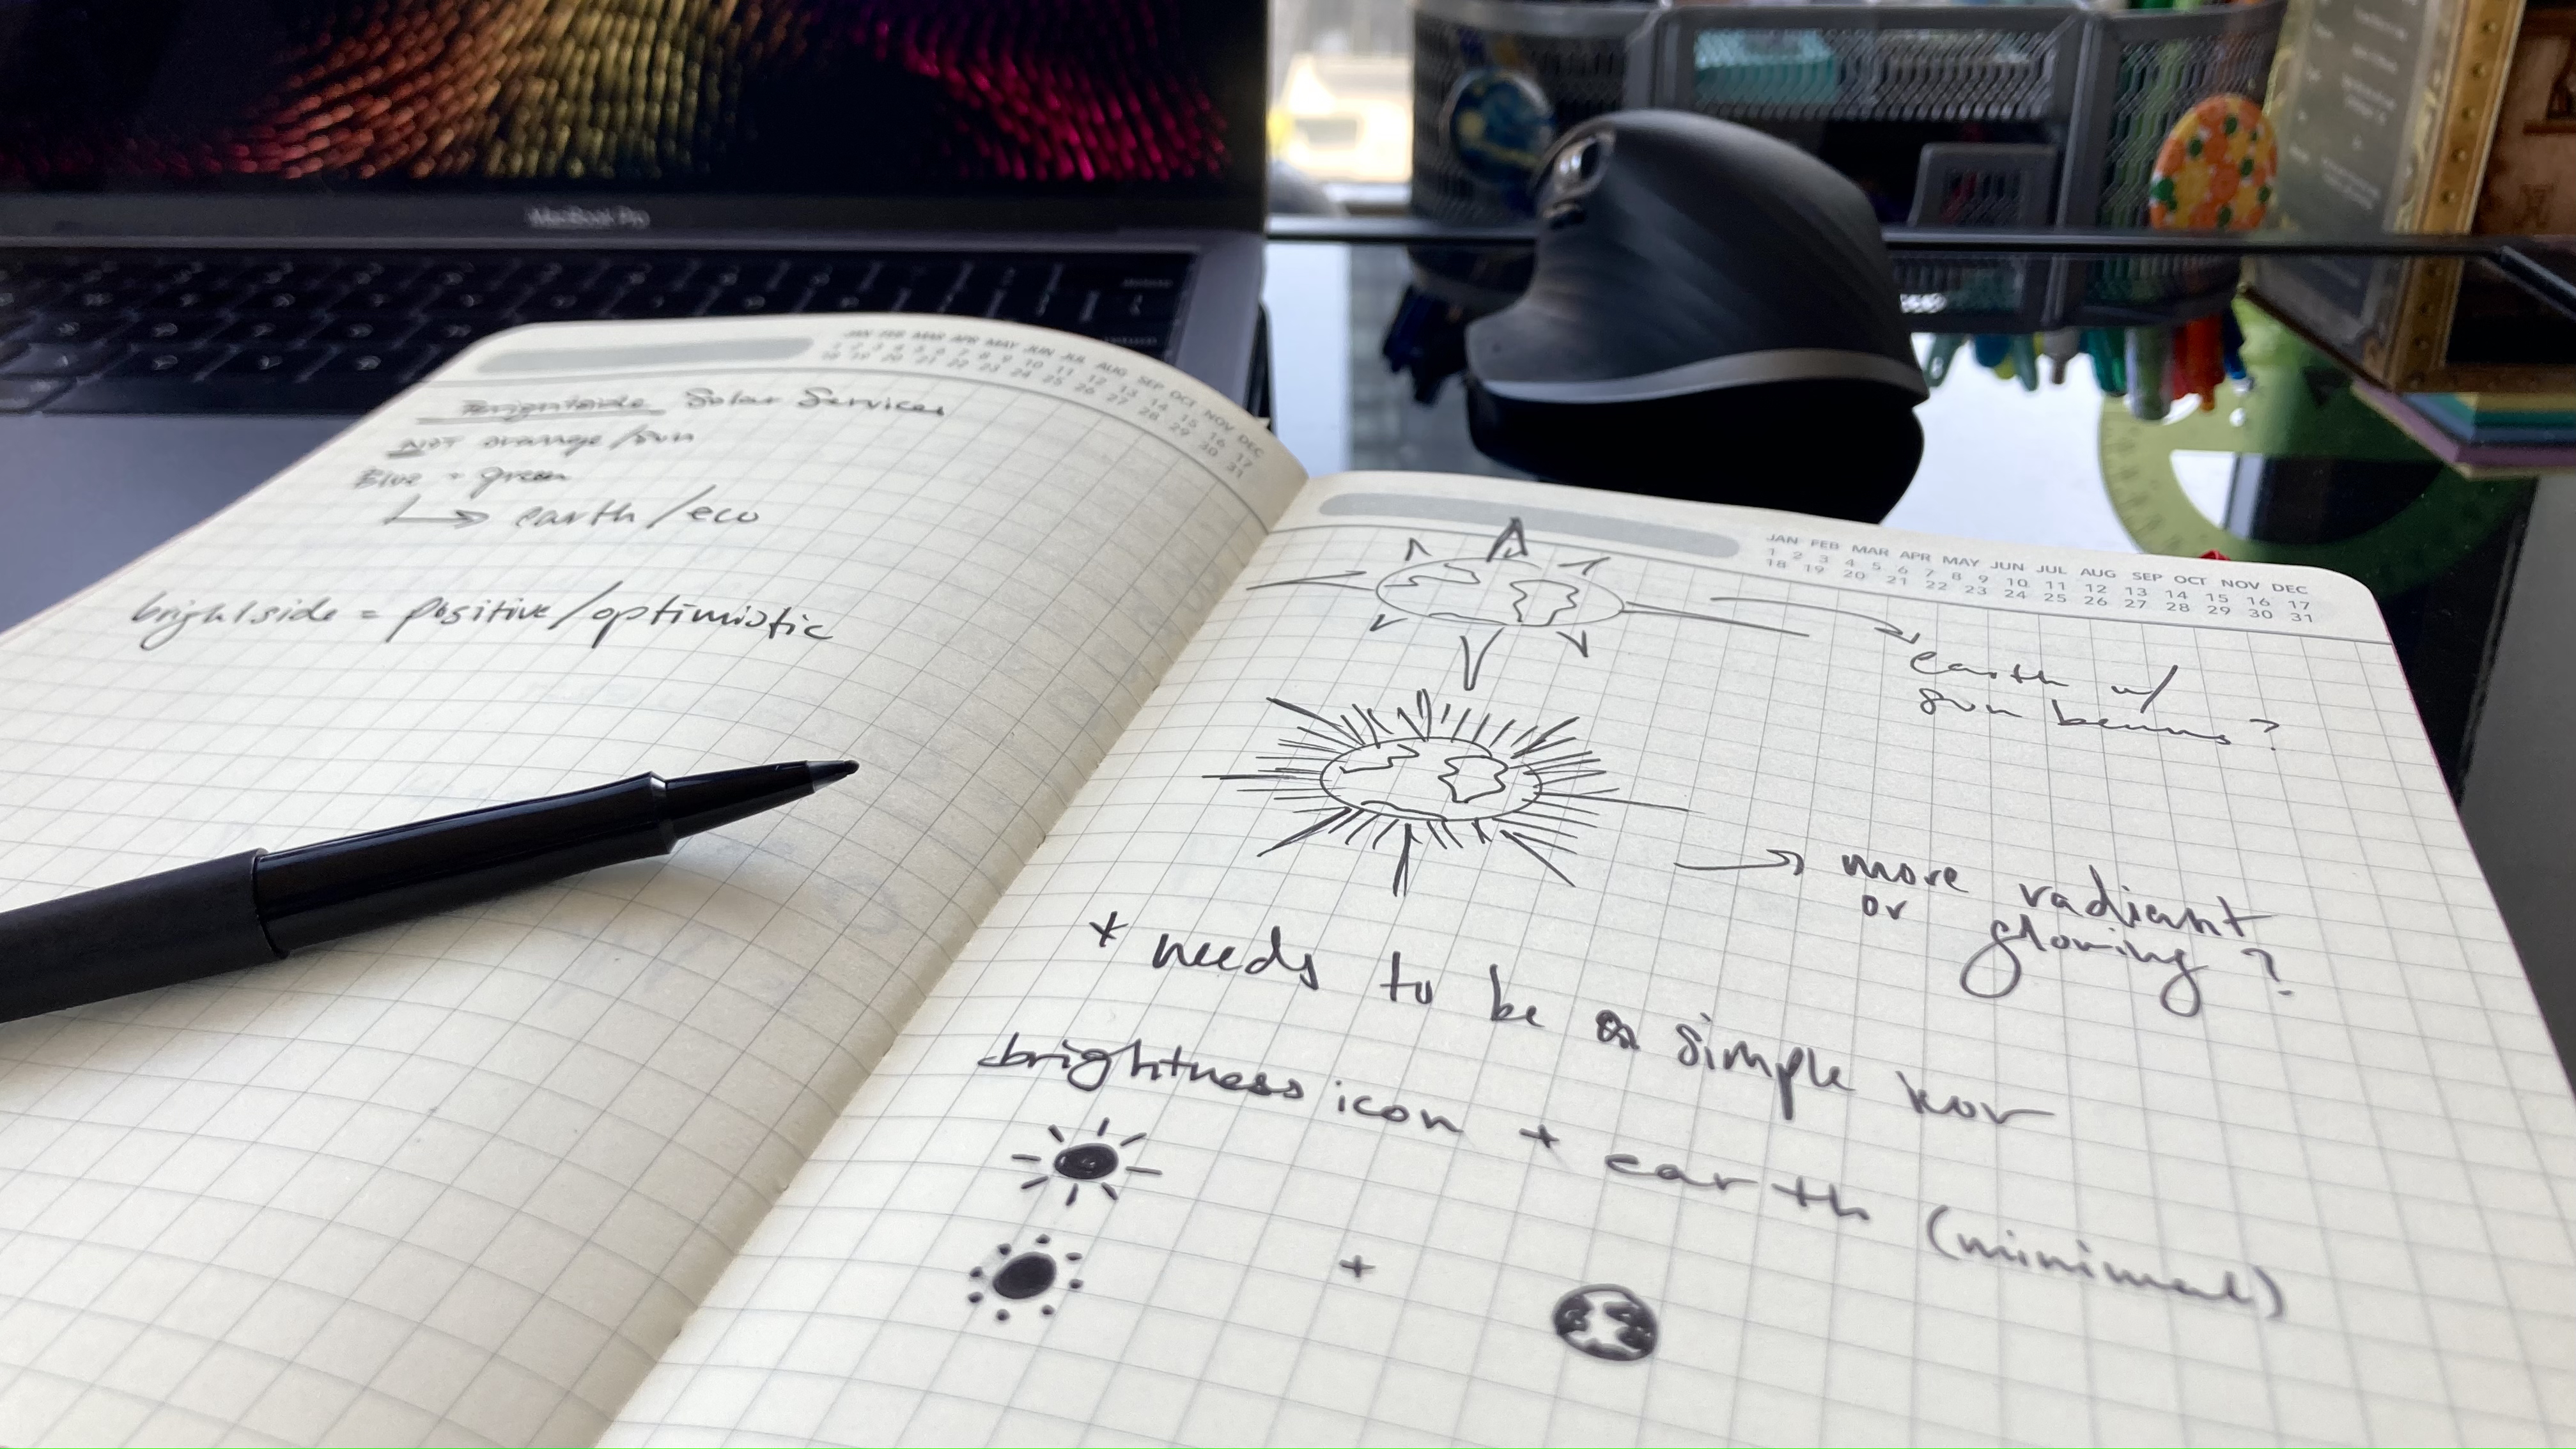 MacBook Pro
JAN FEB MAR APR MAY JUN JUL AUG SEP OCT NOV DEC
1 2 3 4 5 6 7 8 9 10 11 12 13 14 15 16 17
18 19 20 21 22 23 24 25 26 27 28 29 30 31
Brightside Solar Services
NOT orange/sun
Blue + green
earth/eco
brightside = positive/optimistic
JAN FEB MAR APR MAY JUN JUL AUG SEP OCT NOV DEC
1 2 3 4 5 6 7 8 9 10 11 12 13 14 15 16 17
18 19 20 21 22 23 24 25 26 27 28 29 30 31
earth w/
sun beams?
more radiant
or glowing?
* needs to be a simple
brightness icon + earth (minimal)
+